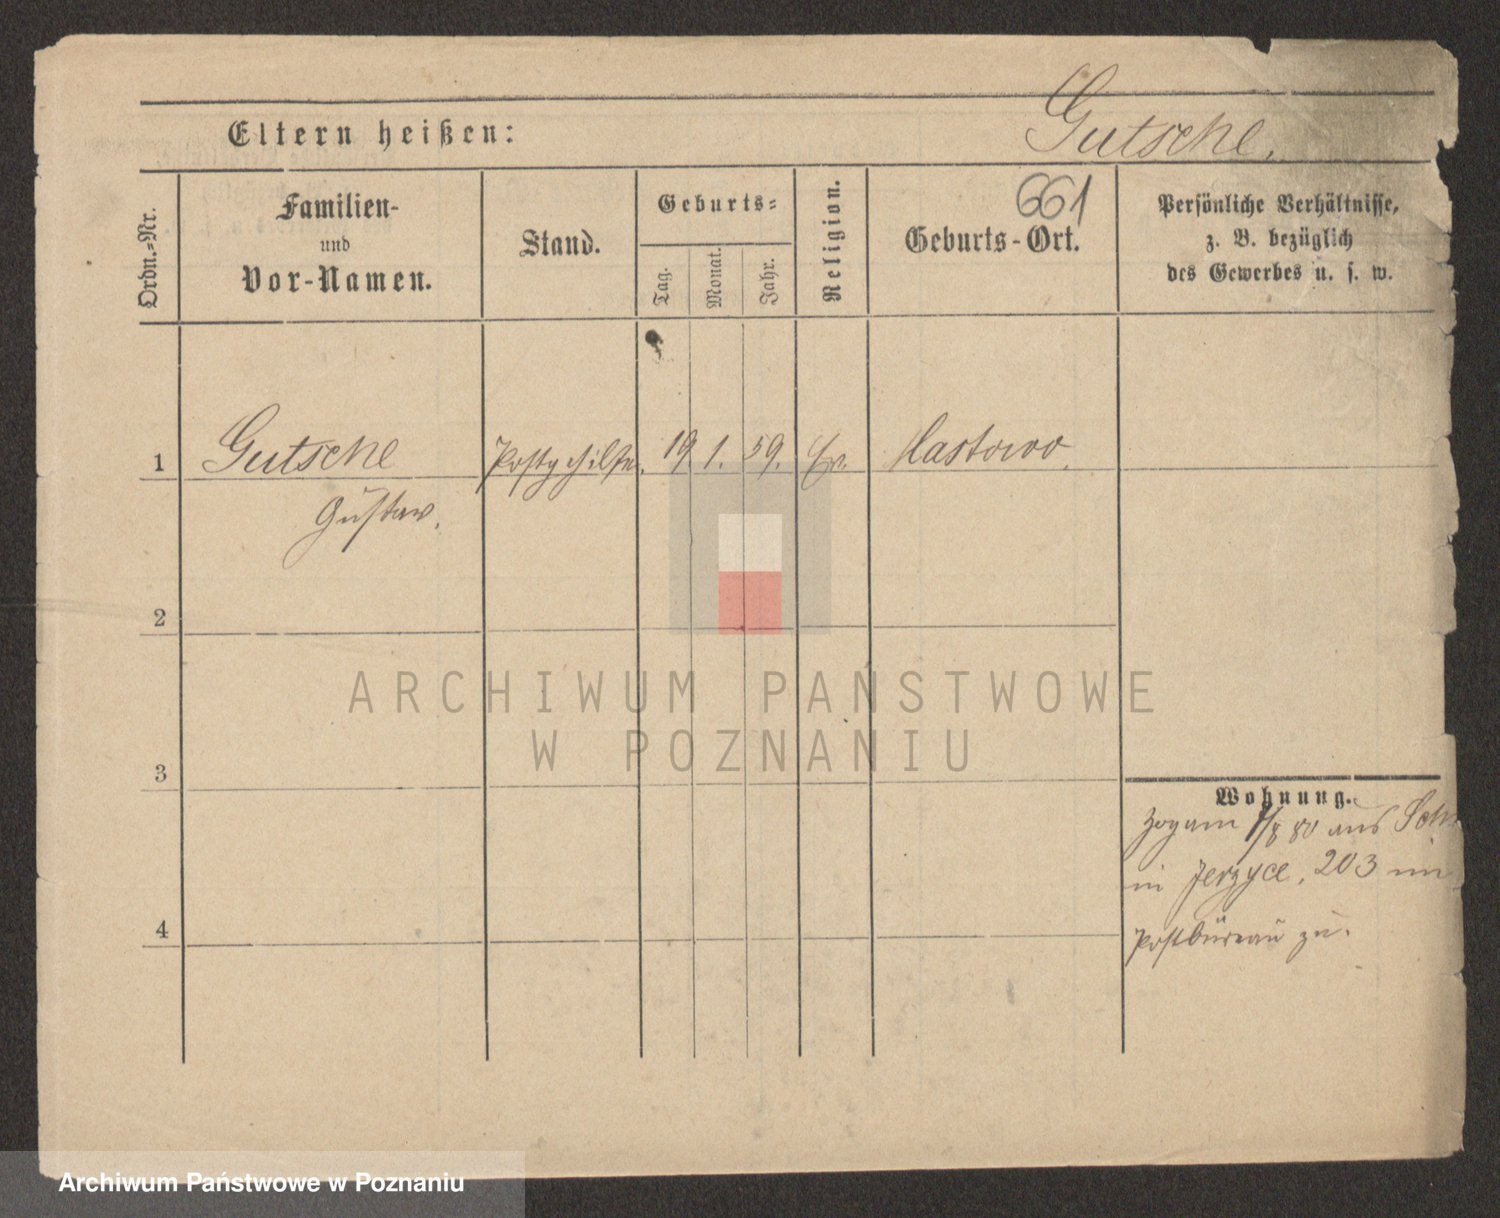 Gutsche.
Eltern heißen:
661
Ordn.-Nr.
Familien-
und
Vor-Namen.
Stand.
Geburts-
Tag.
Monat.
Jahr.
Religion.
Geburts-Ort.
Persönliche Verhältnisse,
z. B. bezüglich
des Gewerbes u. s. w.
1 Gutsche Postgehilfe. 19. 1. 59. Ev.
Gustav.
2
3
4
ARCHIWUM PAŃSTWOWE
W POZNANIU
Wohnung.
zog am 80 aus Sch
in Jerzyce, 203 im
Postbüreau zu.
Archiwum Państwowe w Poznaniu